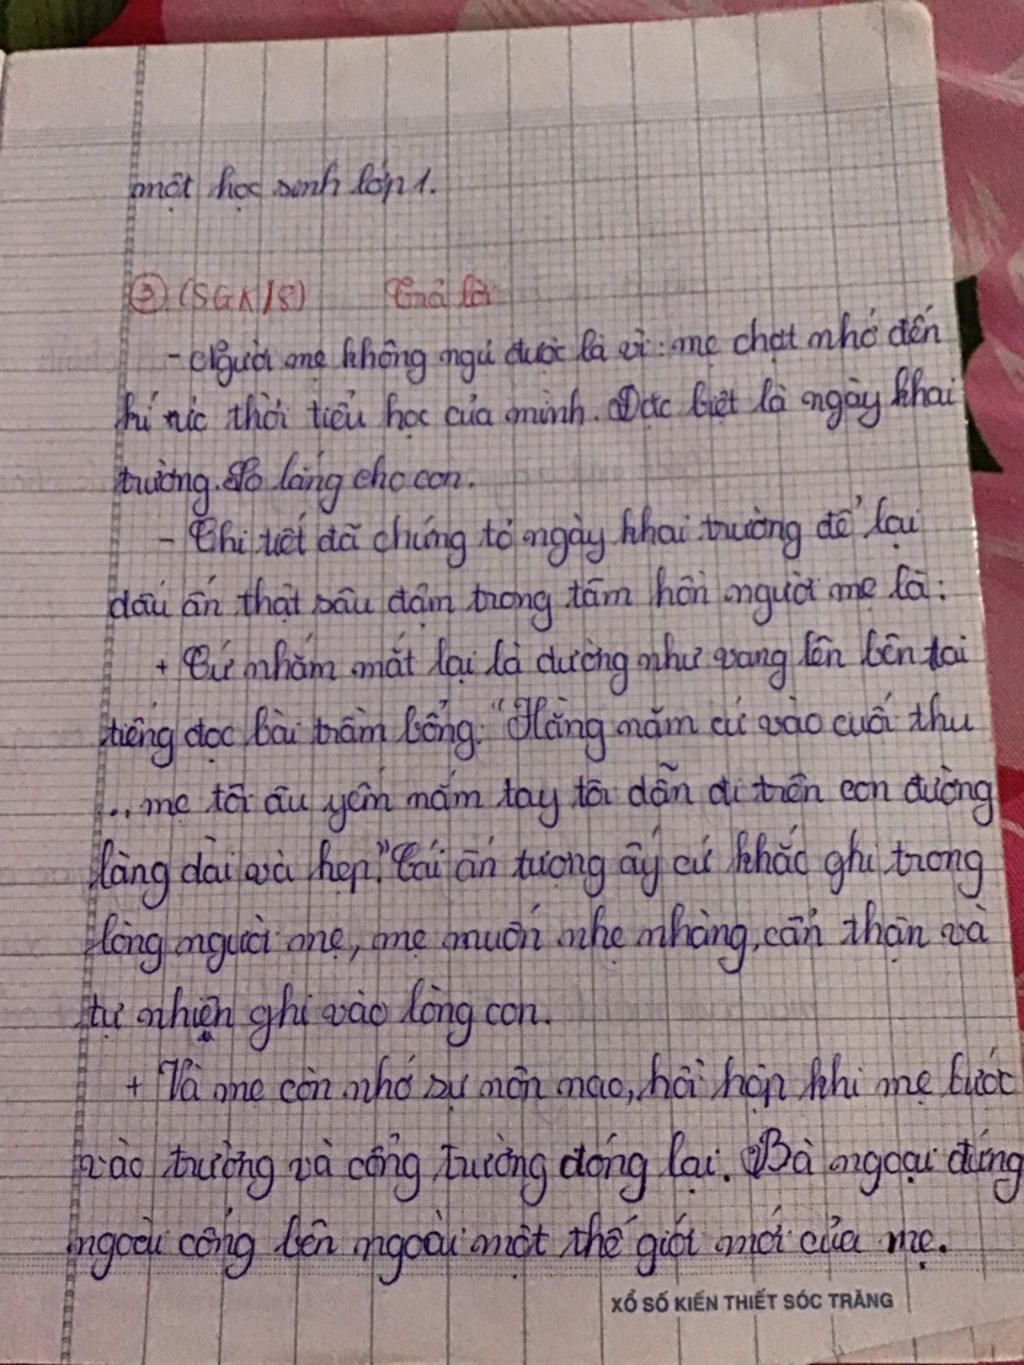 một học sinh lớp 1.
③ (SGK/8) Trả lời
- Người mẹ không ngủ được là vì: mẹ chợt nhớ đến
kí ức thời tiểu học của mình. Đặc biệt là ngày khai
trường. Lo lắng cho con.
- Chi tiết đã chứng tỏ ngày khai trường để lại
dấu ấn thật sâu đậm trong tâm hồn người mẹ là:
+ Cứ nhắm mắt lại là dường như vang lên bên tai
tiếng đọc bài trầm bổng: "Hằng năm cứ vào cuối thu
... mẹ tôi âu yếm nắm tay tôi dẫn đi trên con đường
làng dài và hẹp." Cái ấn tượng ấy cứ khắc ghi trong
lòng người mẹ, mẹ muốn nhẹ nhàng, cẩn thận và
tự nhiên ghi vào lòng con.
+ Và mẹ còn nhớ sự nôn nao, hồi hộp khi mẹ bước
vào trường và cổng trường đóng lại. Bà ngoại đứng
ngoài cổng bên ngoài một thế giới mới của mẹ.
XỔ SỐ KIẾN THIẾT SÓC TRĂNG